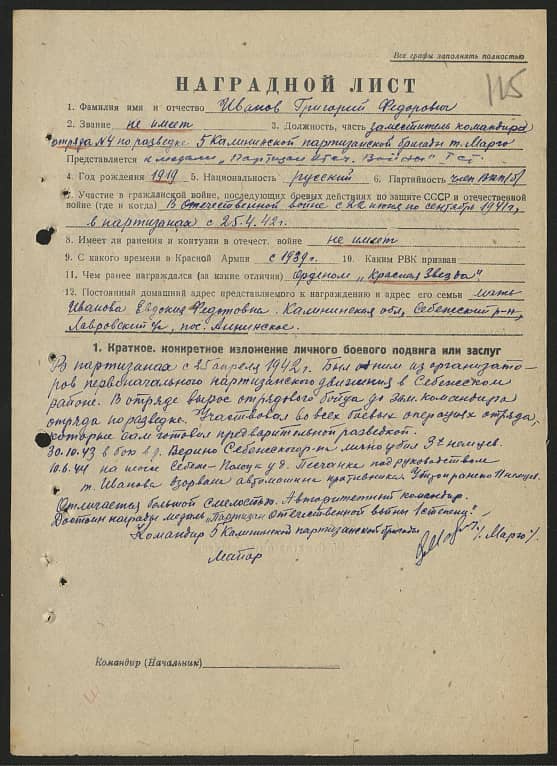 Все графы заполнять полностью
115
НАГРАДНОЙ ЛИСТ
1. Фамилия имя и отчество Иванов Григорий Федорович
2. Звание не имеет 3. Должность, часть заместитель командира
отряда №4 по разведке 5 Калининской партизанской бригады т. Марго
Представляется к медали "Партизан Отеч. Войны" I ст.
4. Год рождения 1919 5. Национальность русский 6. Партийность член ВКП/б/
5. Участие в гражданской войне, последующих боевых действиях по защите СССР и отечественной
войне (где и когда) В отечественной войне с 22 июня по сентябрь 1941 г,
в партизанах с 25.4.42 г.
8. Имеет ли ранения и контузии в отечест. войне не имеет
9. С какого времени в Красной Армии с 1939 г. 10. Каким РВК призван
11. Чем ранее награждался (за какие отличия) Орденом "Красная Звезда"
12. Постоянный домашний адрес представляемого к награждению и адрес его семьи мать
Иванова Евдокия Федотовна. Калининская обл, Себежский р-н,
Лавровский с/с, пос. Аннинское.
1. Краткое, конкретное изложение личного боевого подвига или заслуг
В партизанах с 25 апреля 1942 г. Был одним из организато-
ров первоначального партизанского движения в Себежском
районе. В отряде вырос от рядового бойца до зам. командира
отряда по разведке. Участвовал во всех боевых операциях отряда,
которые сам готовил предварительной разведкой.
30.10.43 в бою в д. Верино Себежского р-на лично убил 3х немцев.
10.6.44 на шоссе Полоцк у д. Песчанка под руководством
т. Иванова взорвана автомашина противника. Убито и ранено 11 немцев.
Отличается большой смелостью. Авторитетный командир.
Достоин награды медаль "Партизан Отечественной войны 1 степени".
Командир 5 Калининской партизанской бригады
Майор /Марго/
Командир (Начальник)